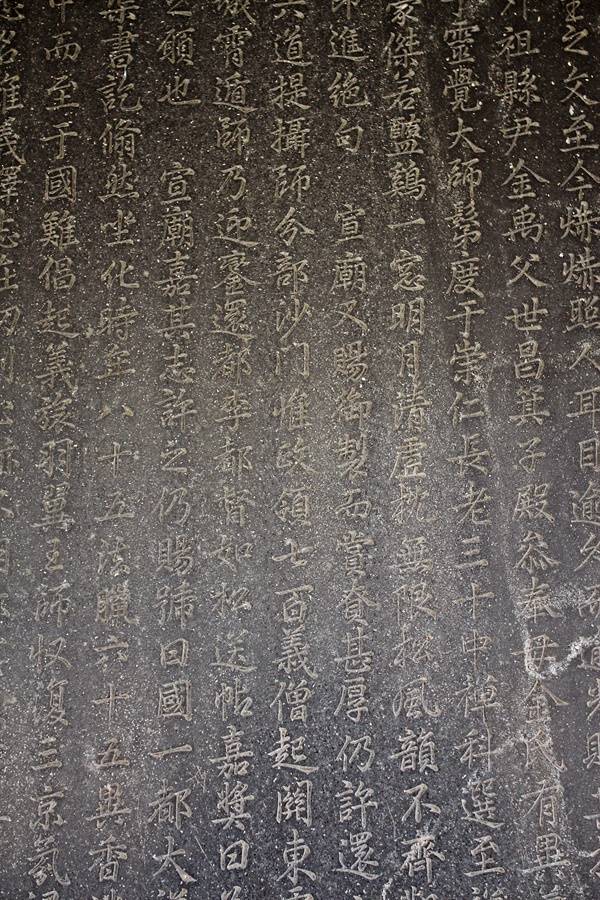 之文至今烋烋照人耳目逾久
外祖縣尹金禹父世昌箕子殿叅奉母金氏有異
靈覺大師髴度于崇仁長老三十中禪科選至
豪傑若醯鷄一窓明月清虛枕無限松風韻不齊
進絕句 宣廟又賜御製而賞賚甚厚仍許還
六道提攝師分部沙门惟政領七百義僧起關東
城霄遁師乃迎鑾還都李都督如松送帖嘉奬曰
之願也 宣廟嘉其志許之仍賜號曰國一都大
書訖翛然坐化時年八十五法臘六十五異香
中而至于國難倡起義旅羽翼王師收復三京氛
惟義擇志在